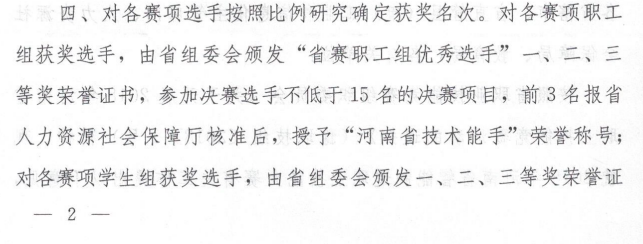 四、对各赛项选手按照比例研究确定获奖名次。对各赛项职工
组获奖选手，由省组委会颁发“省赛职工组优秀选手”一、二、三
等奖荣誉证书，参加决赛选手不低于 15 名的决赛项目，前 3 名报省
人力资源社会保障厅核准后，授予“河南省技术能手”荣誉称号；
对各赛项学生组获奖选手，由省组委会颁发一、二、三等奖荣誉证
— 2 —